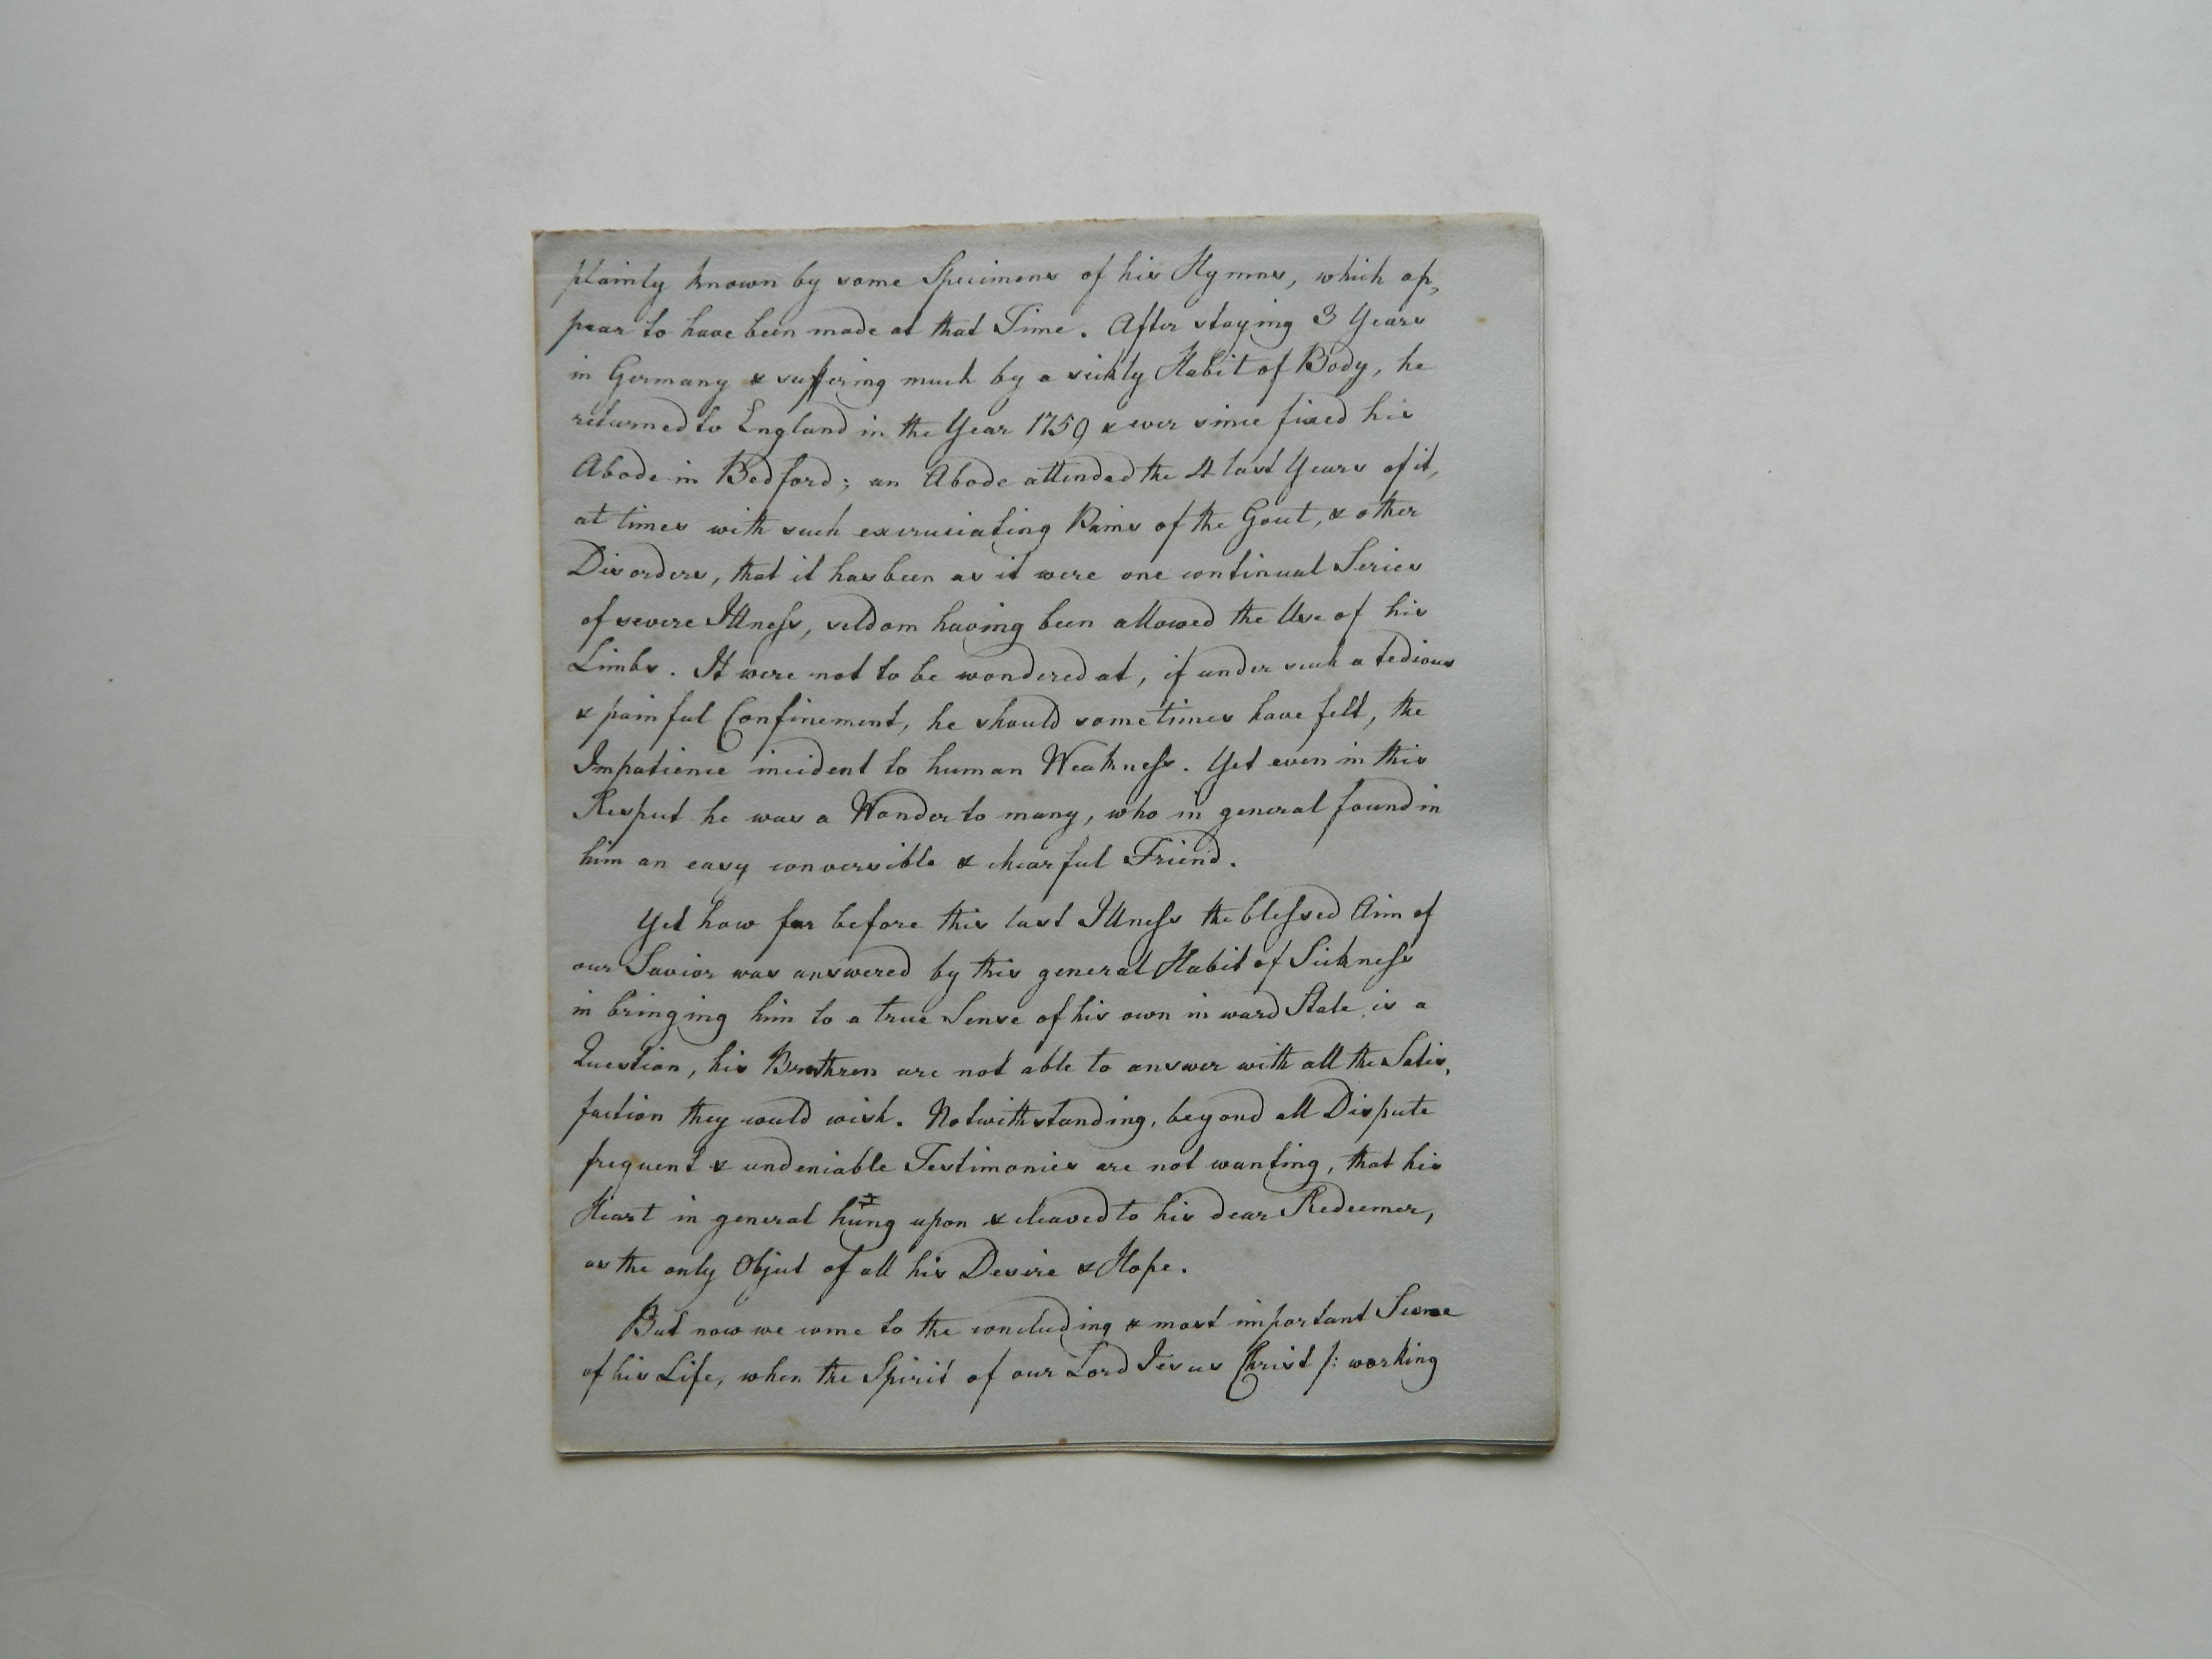 plainly known by some Specimens of his Hymns, which ap,
pear to have been made at that Time. After staying 3 Years
in Germany & suffering much by a sickly Habit of Body, he
returned to England in the Year 1759 & ever since fixed his
Abode in Bedford; an Abode attended the 4 last Years of it,
at times with such excruciating Pains of the Gout, & other
Disorders, that it has been as it were one continual Series
of severe Illness, seldom having been allowed the Use of his
Limbs. It were not to be wondered at, if under such a tedious
& painful Confinement, he should sometimes have felt, the
Impatience incident to human Weakness. Yet even in this
Respect he was a Wonder to many, who in general found in
him an easy conversible & chearful Friend.
Yet how far before this last Illness the blessed Aim of
our Savior was answered by this general Habit of Sickness
in bringing him to a true Sense of his own inward State is a
Question, his Brethren are not able to answer with all the Satis,
faction they could wish. Notwithstanding, beyond all Dispute
frequent & undeniable Testimonies are not wanting, that his
Heart in general hung upon & cleaved to his dear Redeemer,
as the only Object of all his Desire & Hope.
But now we come to the concluding & most important Scene
of his Life, when the Spirit of our Lord Jesus Christ /: working